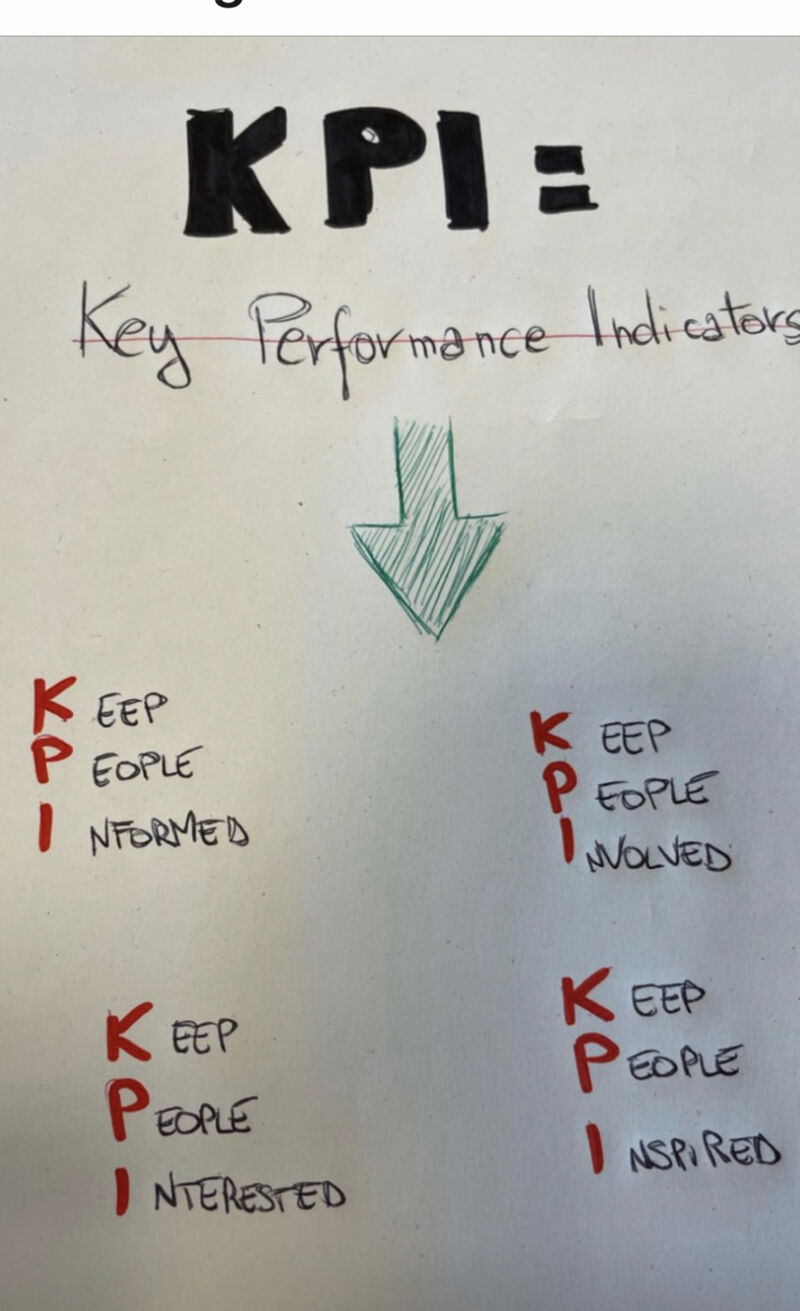 KPI =
Key Performance Indicators
KEEP
PEOPLE
INFORMED
KEEP
PEOPLE
INVOLVED
KEEP
PEOPLE
INTERESTED
KEEP
PEOPLE
INSPIRED